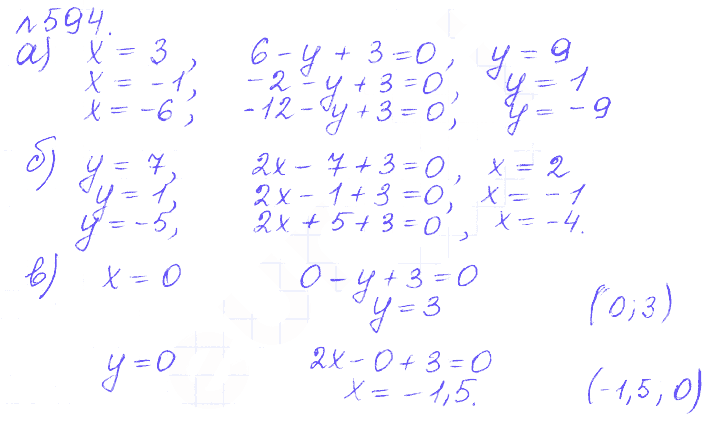 №594.
а) x = 3, 6 - y + 3 = 0, y = 9
x = -1, -2 - y + 3 = 0, y = 1
x = -6, -12 - y + 3 = 0, y = -9
б) y = 7, 2x - 7 + 3 = 0, x = 2
y = 1, 2x - 1 + 3 = 0, x = -1
y = -5, 2x + 5 + 3 = 0, x = -4.
в) x = 0 0 - y + 3 = 0
y = 3 (0; 3)
y = 0 2x - 0 + 3 = 0
x = -1,5. (-1,5, 0)